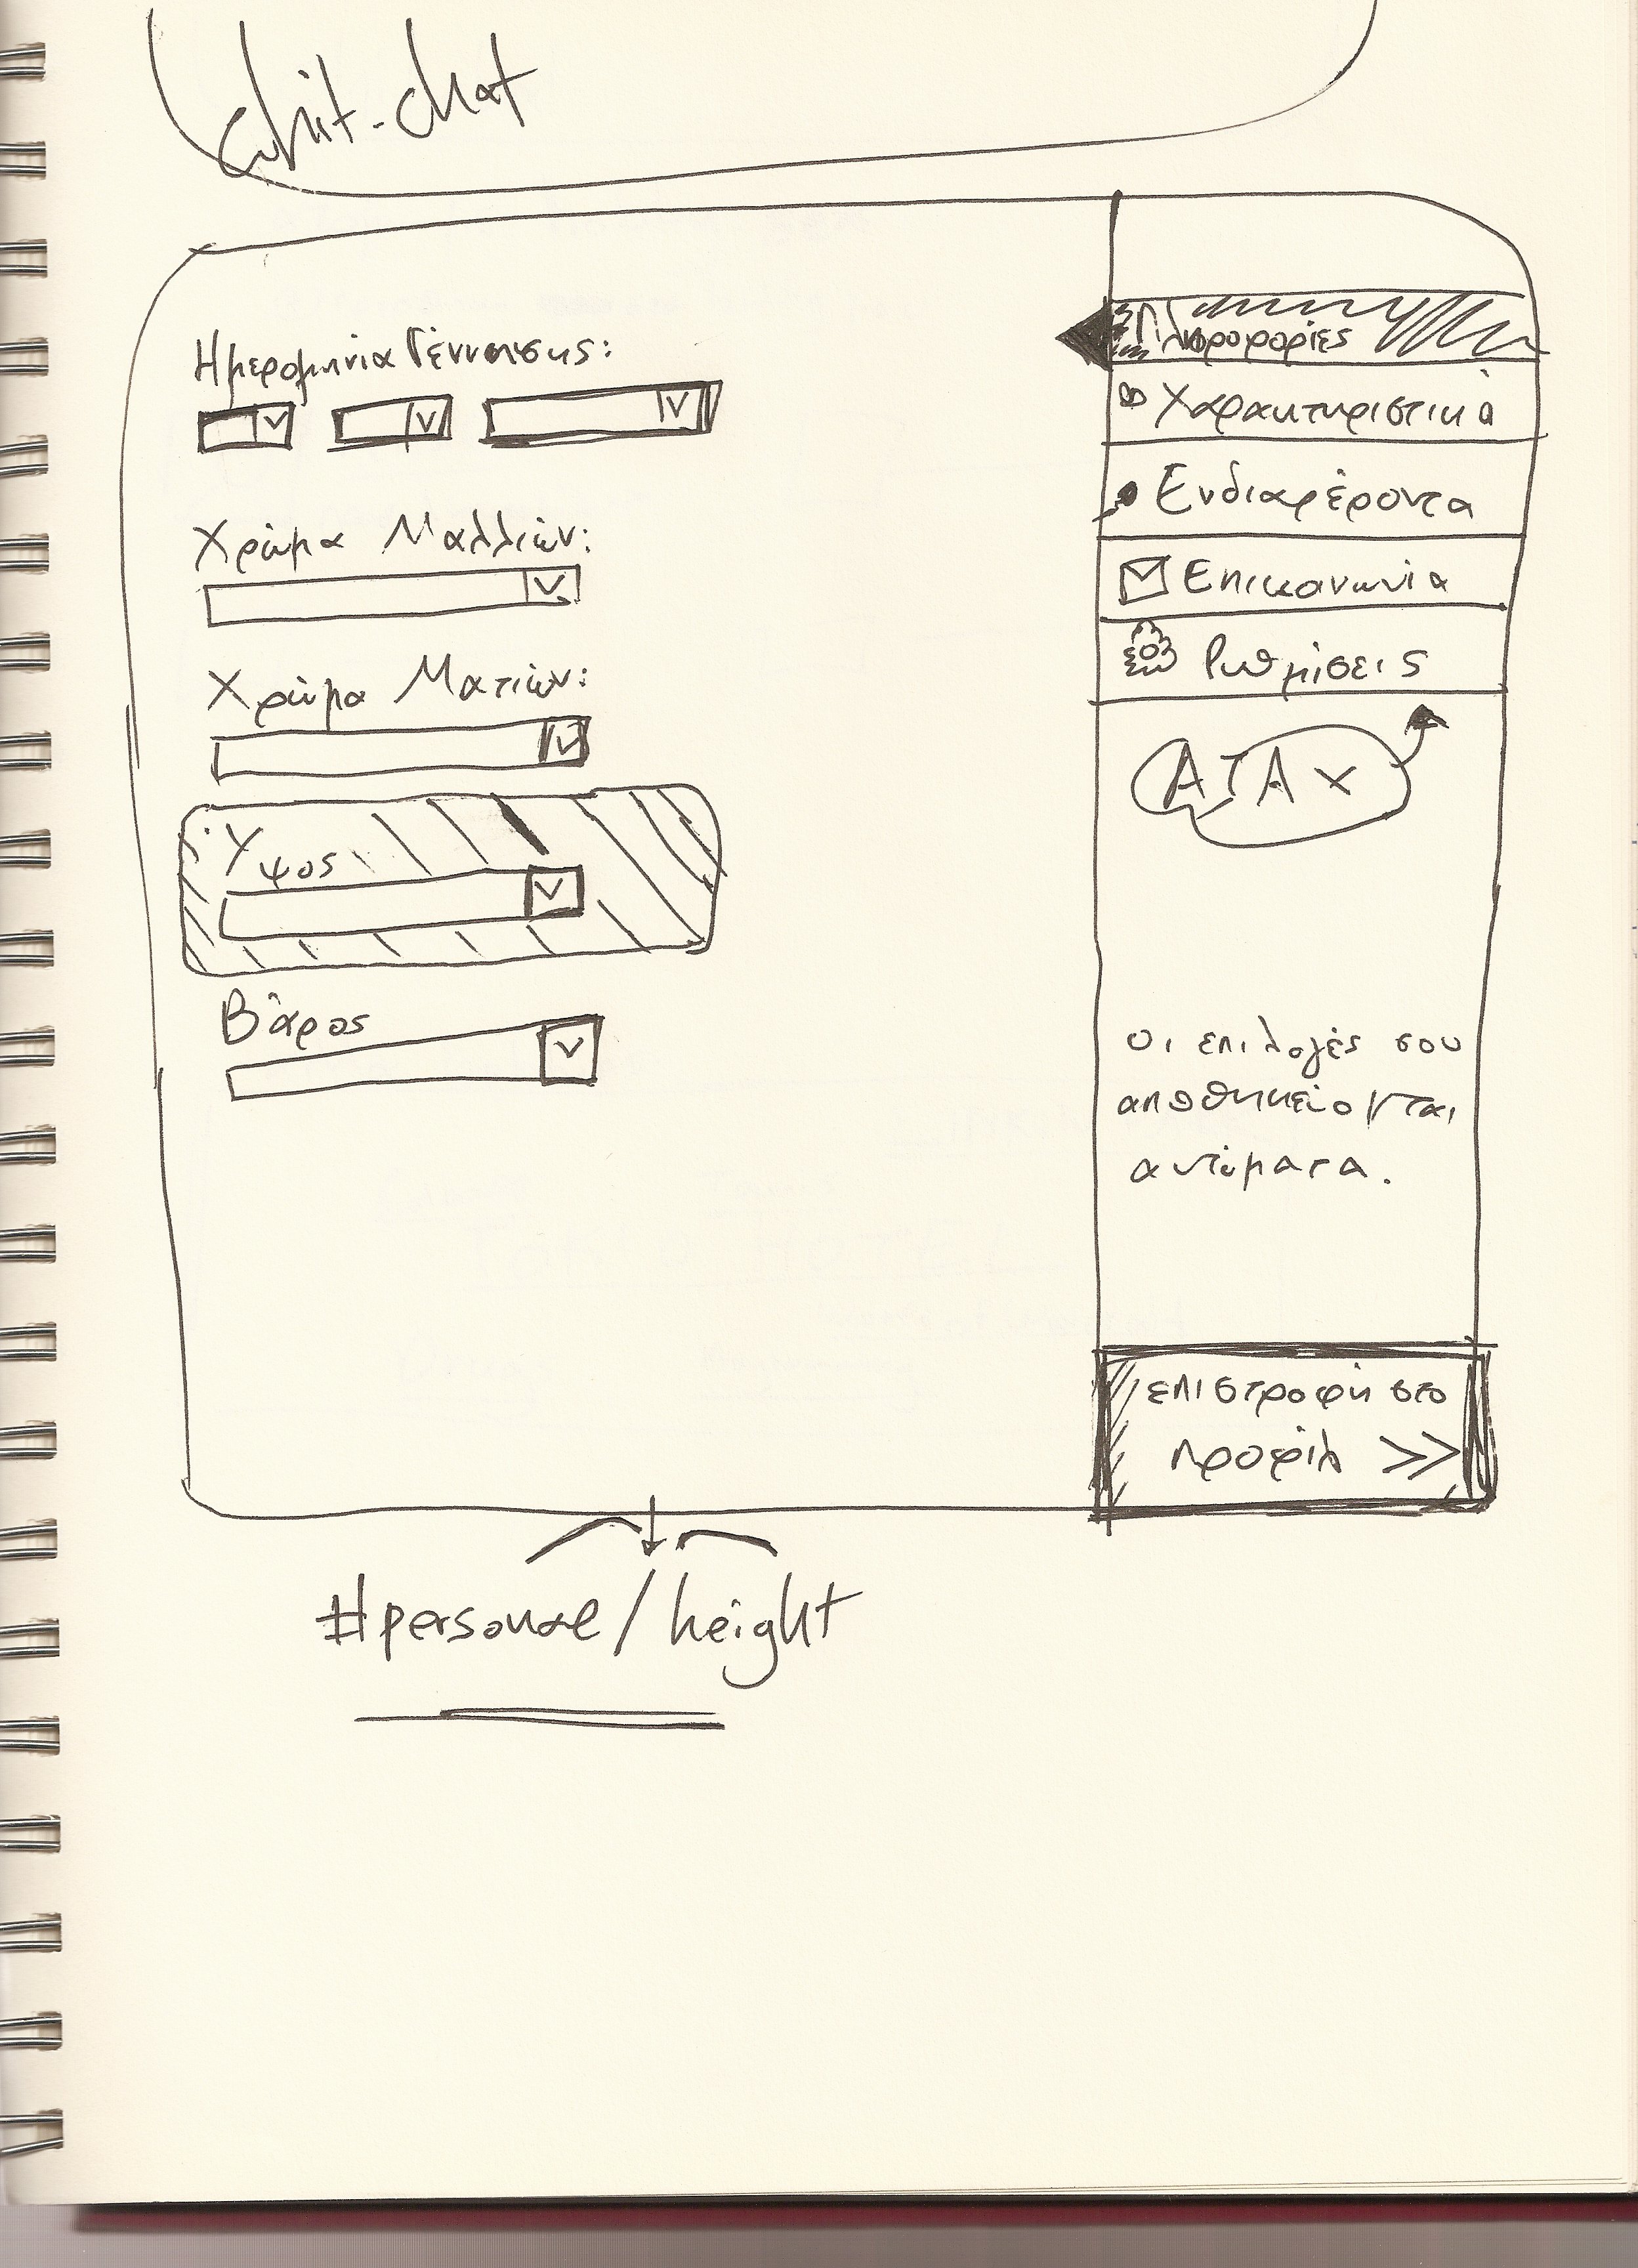 chit-chat
Ημερομηνία Γέννησης:
Χρώμα Μαλλιών:
Χρώμα Ματιών:
Υψος
Βάρος
Πληροφορίες
Χαρακτηριστικά
Ενδιαφέροντα
Επικοινωνία
Ρυθμίσεις
οι επιλογές σου
αποθηκεύονται
αυτόματα.
επιστροφή στο
προφίλ >>
#personal/height